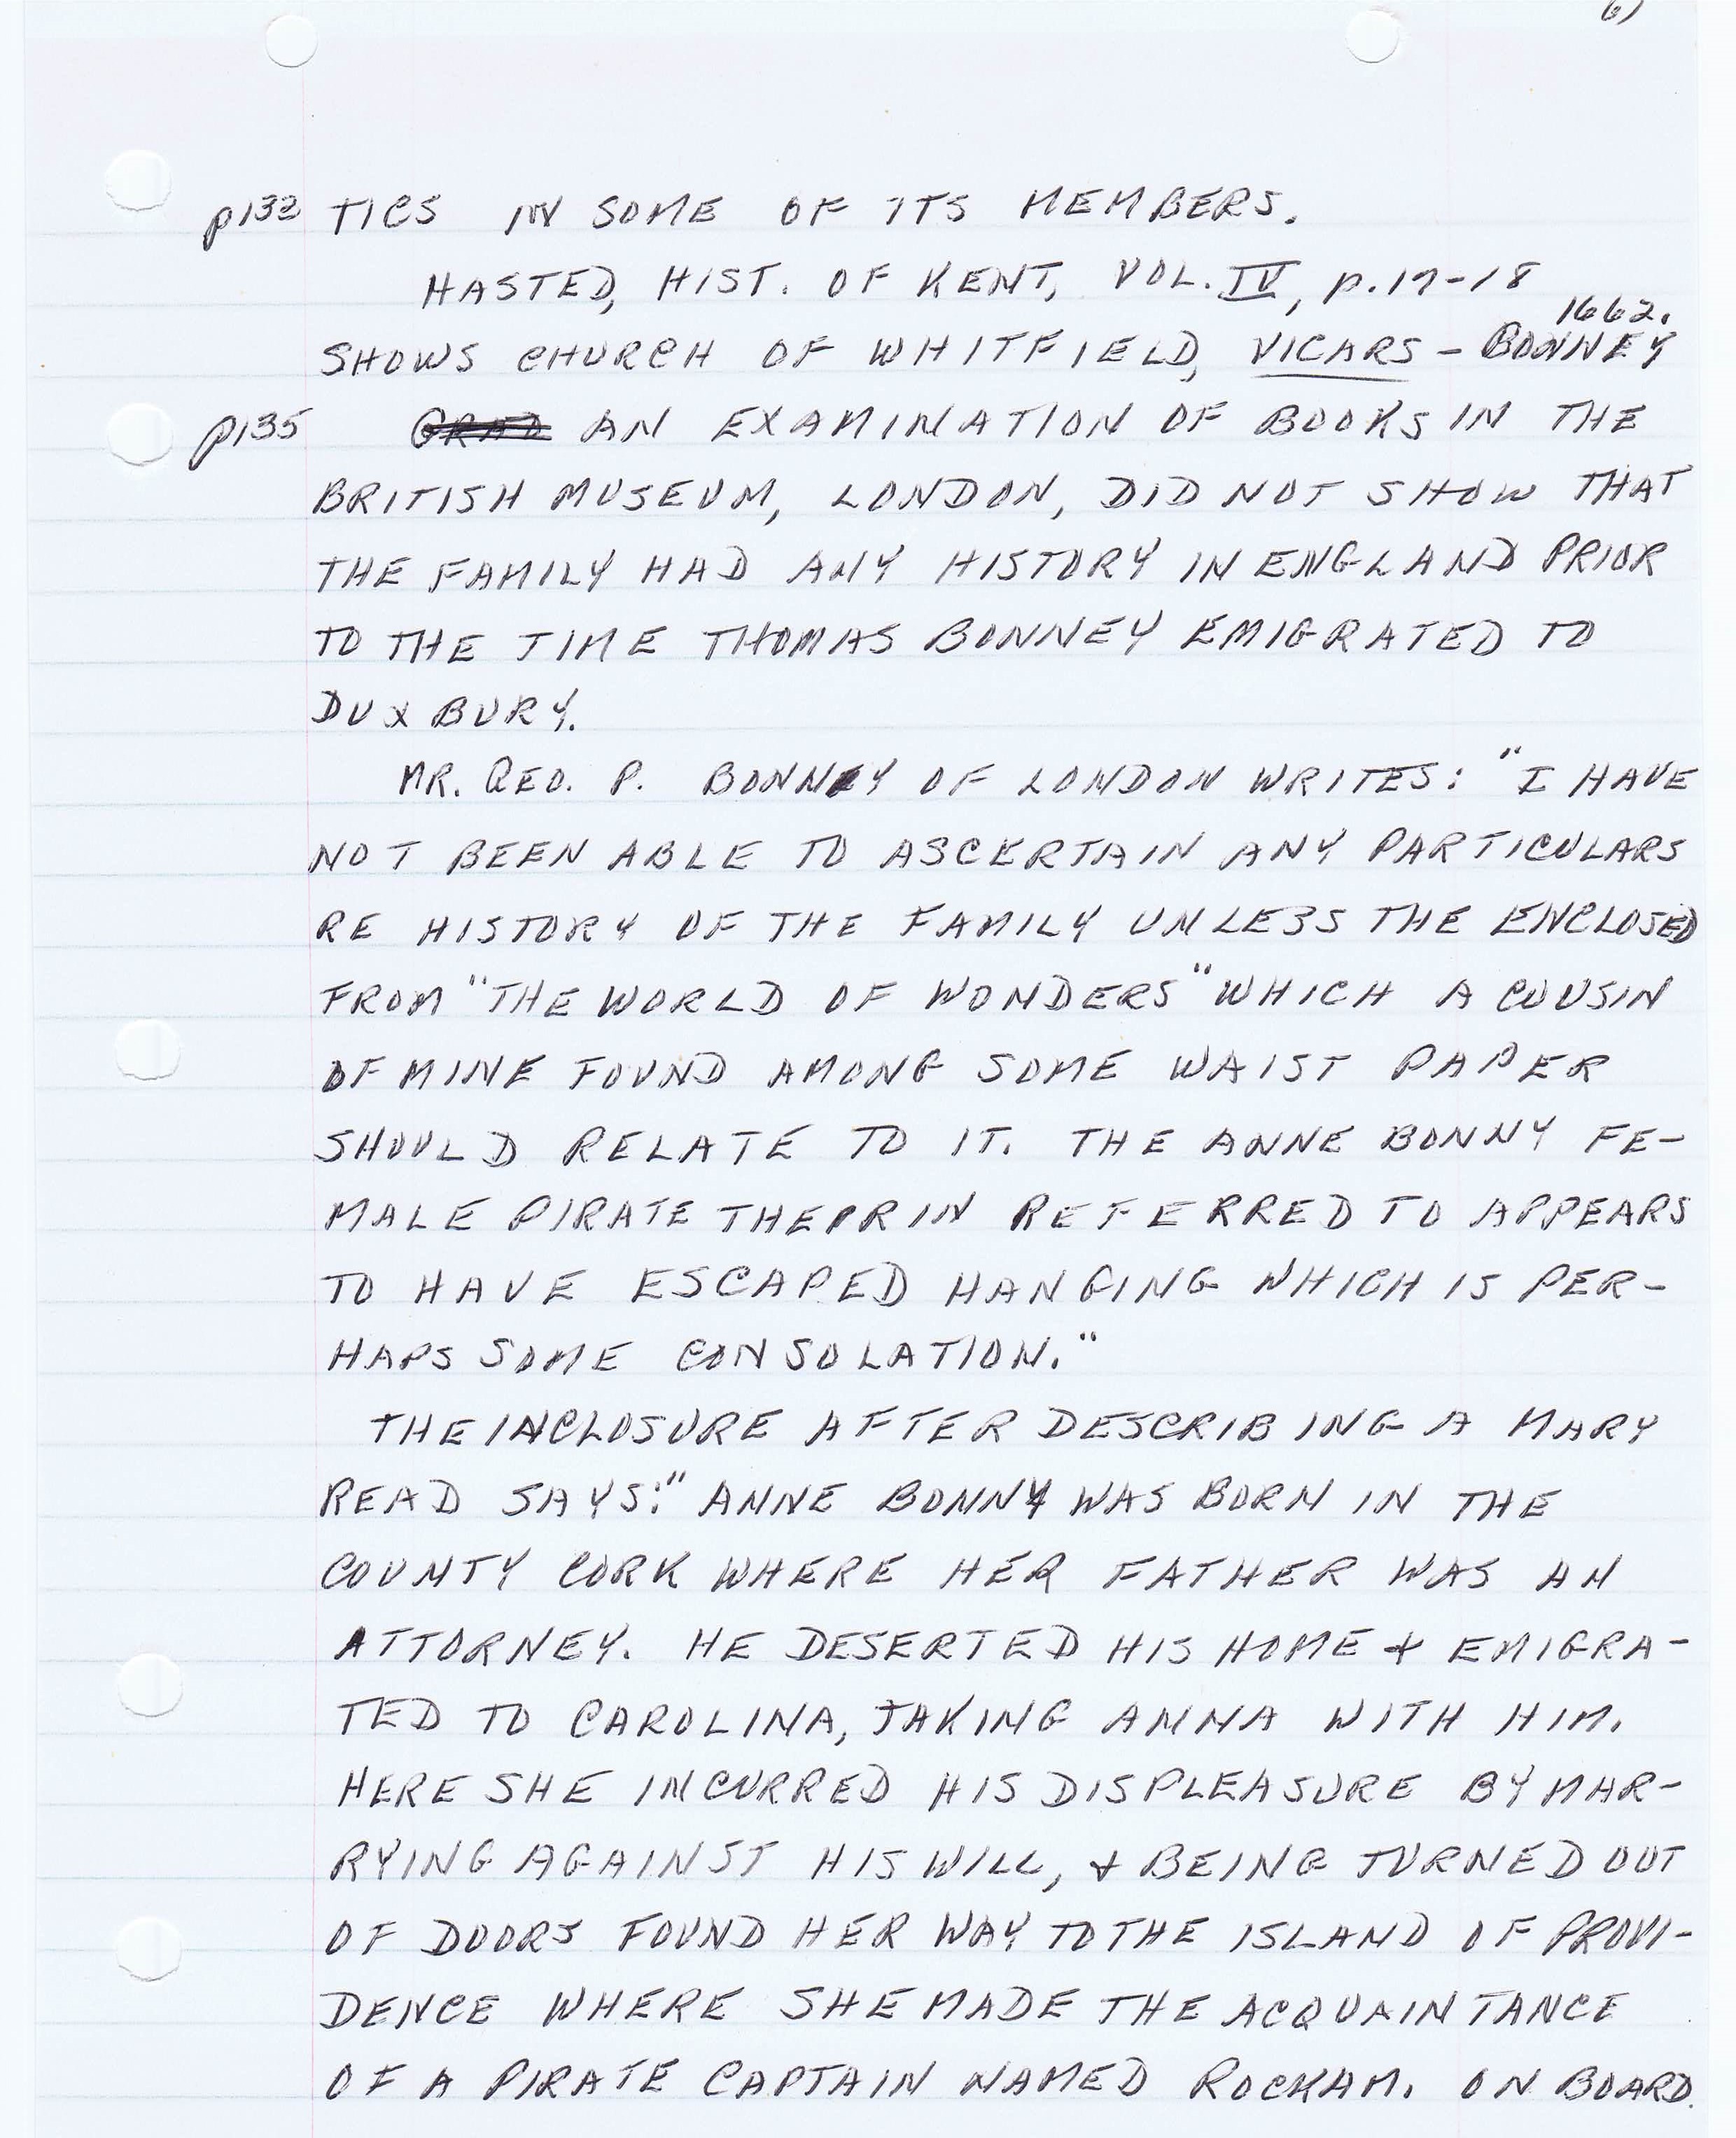 6)
p132 TICS IN SOME OF ITS MEMBERS.
HASTED, HIST. OF KENT, VOL. IV, p. 17-18
1662.
SHOWS CHURCH OF WHITFIELD, VICARS - BONNEY
p135 AN EXAMINATION OF BOOKS IN THE
BRITISH MUSEUM, LONDON, DID NOT SHOW THAT
THE FAMILY HAD ANY HISTORY IN ENGLAND PRIOR
TO THE TIME THOMAS BONNEY EMIGRATED TO
DUXBURY.
MR. GEO. P. BONNEY OF LONDON WRITES: "I HAVE
NOT BEEN ABLE TO ASCERTAIN ANY PARTICULARS
RE HISTORY OF THE FAMILY UNLESS THE ENCLOSED
FROM "THE WORLD OF WONDERS" WHICH A COUSIN
OF MINE FOUND AMONG SOME WAIST PAPER
SHOULD RELATE TO IT. THE ANNE BONNY FE-
MALE PIRATE THERIN REFERRED TO APPEARS
TO HAVE ESCAPED HANGING WHICH IS PER-
HAPS SOME CONSOLATION."
THE INCLOSURE AFTER DESCRIBING A MARY
READ SAYS: "ANNE BONNY WAS BORN IN THE
COUNTY CORK WHERE HER FATHER WAS AN
ATTORNEY. HE DESERTED HIS HOME & EMIGRA-
TED TO CAROLINA, TAKING ANNA WITH HIM.
HERE SHE INCURRED HIS DISPLEASURE BY MAR-
RYING AGAINST HIS WILL, & BEING TURNED OUT
OF DOORS FOUND HER WAY TO THE ISLAND OF PROVI-
DENCE WHERE SHE MADE THE ACQUAINTANCE
OF A PIRATE CAPTAIN NAMED ROCKAM. ON BOARD